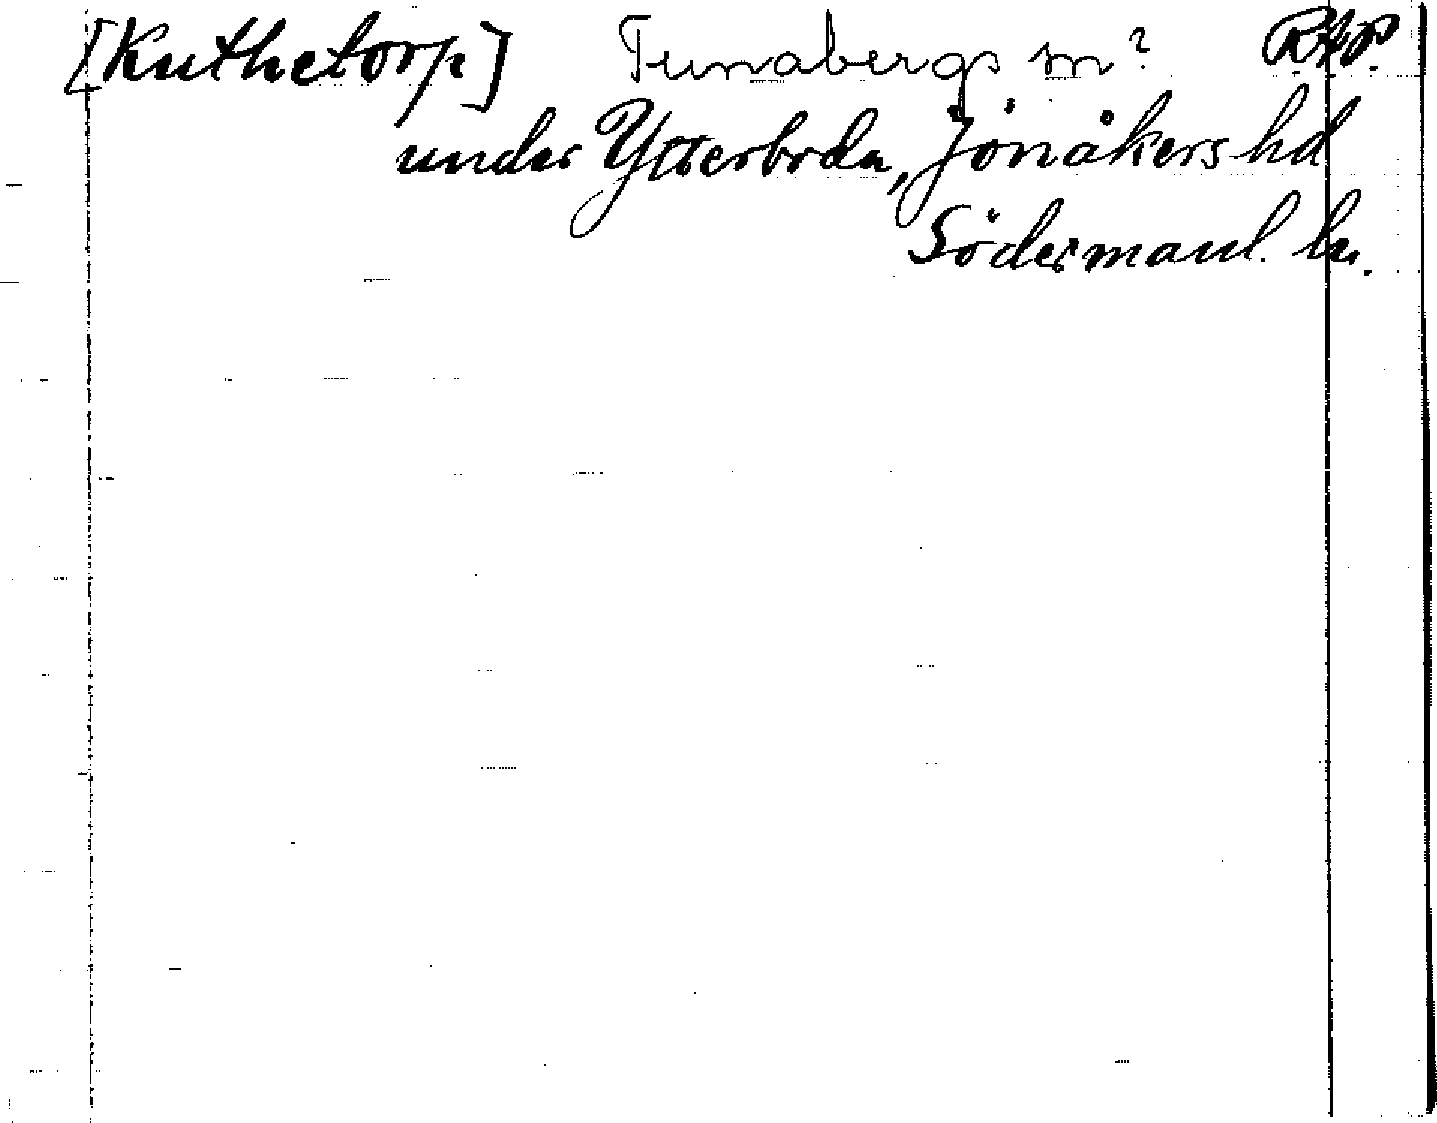 [Kuthetorp] Tunabergs sn? RAP.
under Ytterbrda, Jönåkers hd
Södermanl. ln.